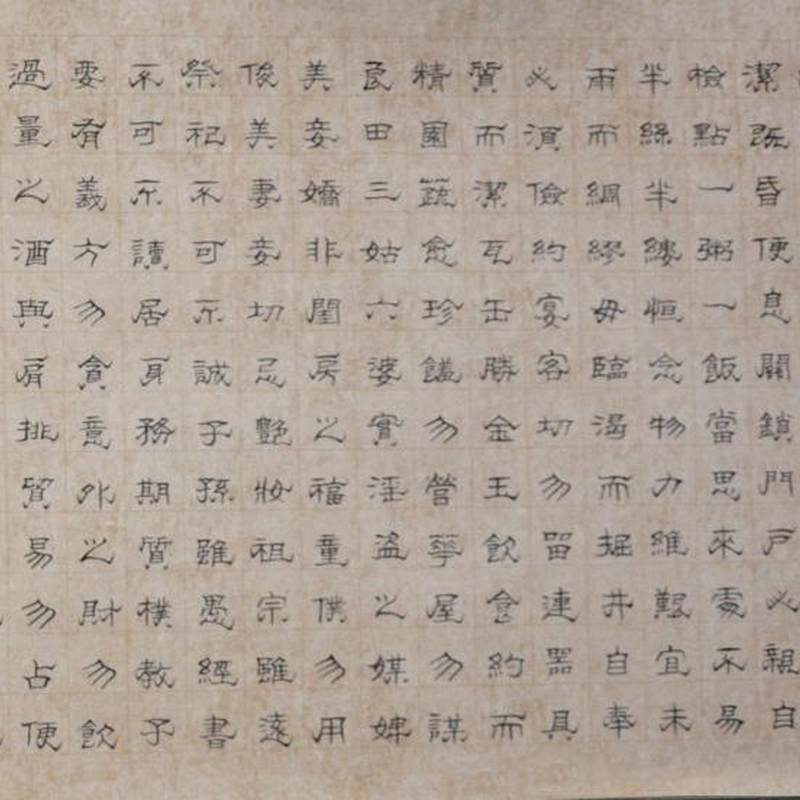 潔既昏便息關鎖門戶必親自
檢點一粥一飯當思來處不易
半絲半縷恒念物力維艱宜未
雨而綢繆毋臨渴而掘井自奉
必須儉約宴客切勿留連器具
質而潔瓦缶勝金玉飲食約而
精園蔬愈珍饈勿營華屋勿謀
良田三姑六婆實淫盜之媒婢
美妾嬌非閨房之福童僕勿用
俊美妻妾切忌艷妝祖宗雖遠
祭祀不可不誠子孫雖愚經書
不可不讀居身務期質樸教子
要有義方勿貪意外之財勿飲
過量之酒與肩挑貿易勿占便